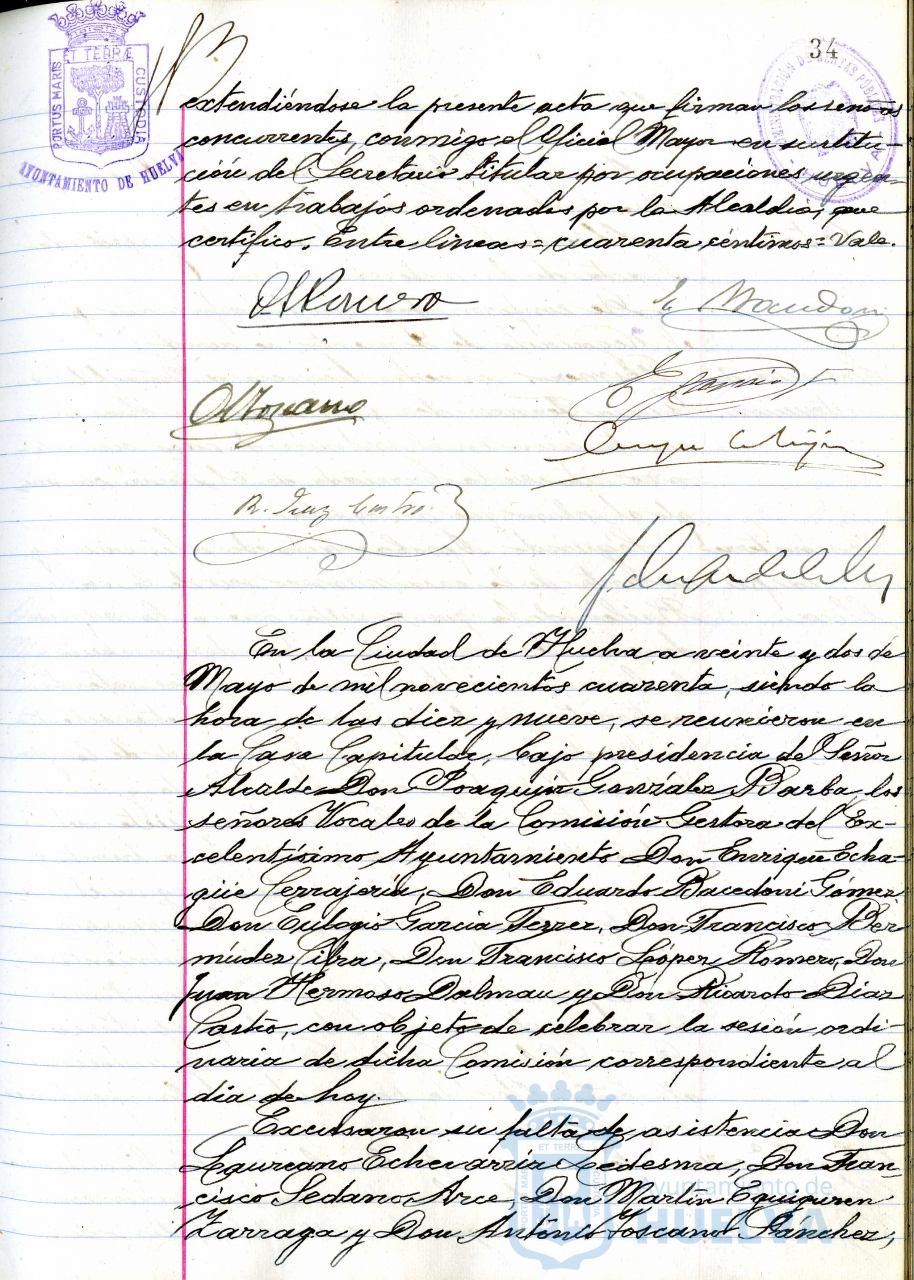 34
PORTUS MARIS ET TERRÆ CUSTODIA
AYUNTAMIENTO DE HUELVA
extendiéndose la presente acta que firman los señores
concurrentes, conmigo el Oficial Mayor en sustitu-
ción del Secretario titular por ocupaciones urgen-
tes en trabajos ordenados por la Alcaldia, que
certifico. Entre lineas = cuarenta céntimos = Vale.
R. Diaz Castro
En la Ciudad de Huelva a veinte y dos de
Mayo de mil novecientos cuarenta, siendo la
hora de las diez y nueve, se reunieron en
la Casa Capitular, bajo presidencia del Señor
Alcalde Don Joaquín González Barba, los
señores Vocales de la Comisión Gestora del Ex-
celentísimo Ayuntamiento Don Enrique Echa-
güe Cerrajería, Don Eduardo Bacedoni Gómez
Don Eulogio García Ferrer, Don Francisco Ber
múdez Cibra, Don Francisco López Romero, Don
Juan Hermoso Dalmau y Don Ricardo Díaz
Castro, con objeto de celebrar la sesión ordi-
naria de dicha Comisión correspondiente al
día de hoy.
Excusaron su falta de asistencia Don
Laureano Echevarría Ledesma, Don Fran-
cisco Sedano Arce, Don Martín Eguiguren
Zarraga y Don António Toscano Sánchez,
Ayuntamiento de
HUELVA